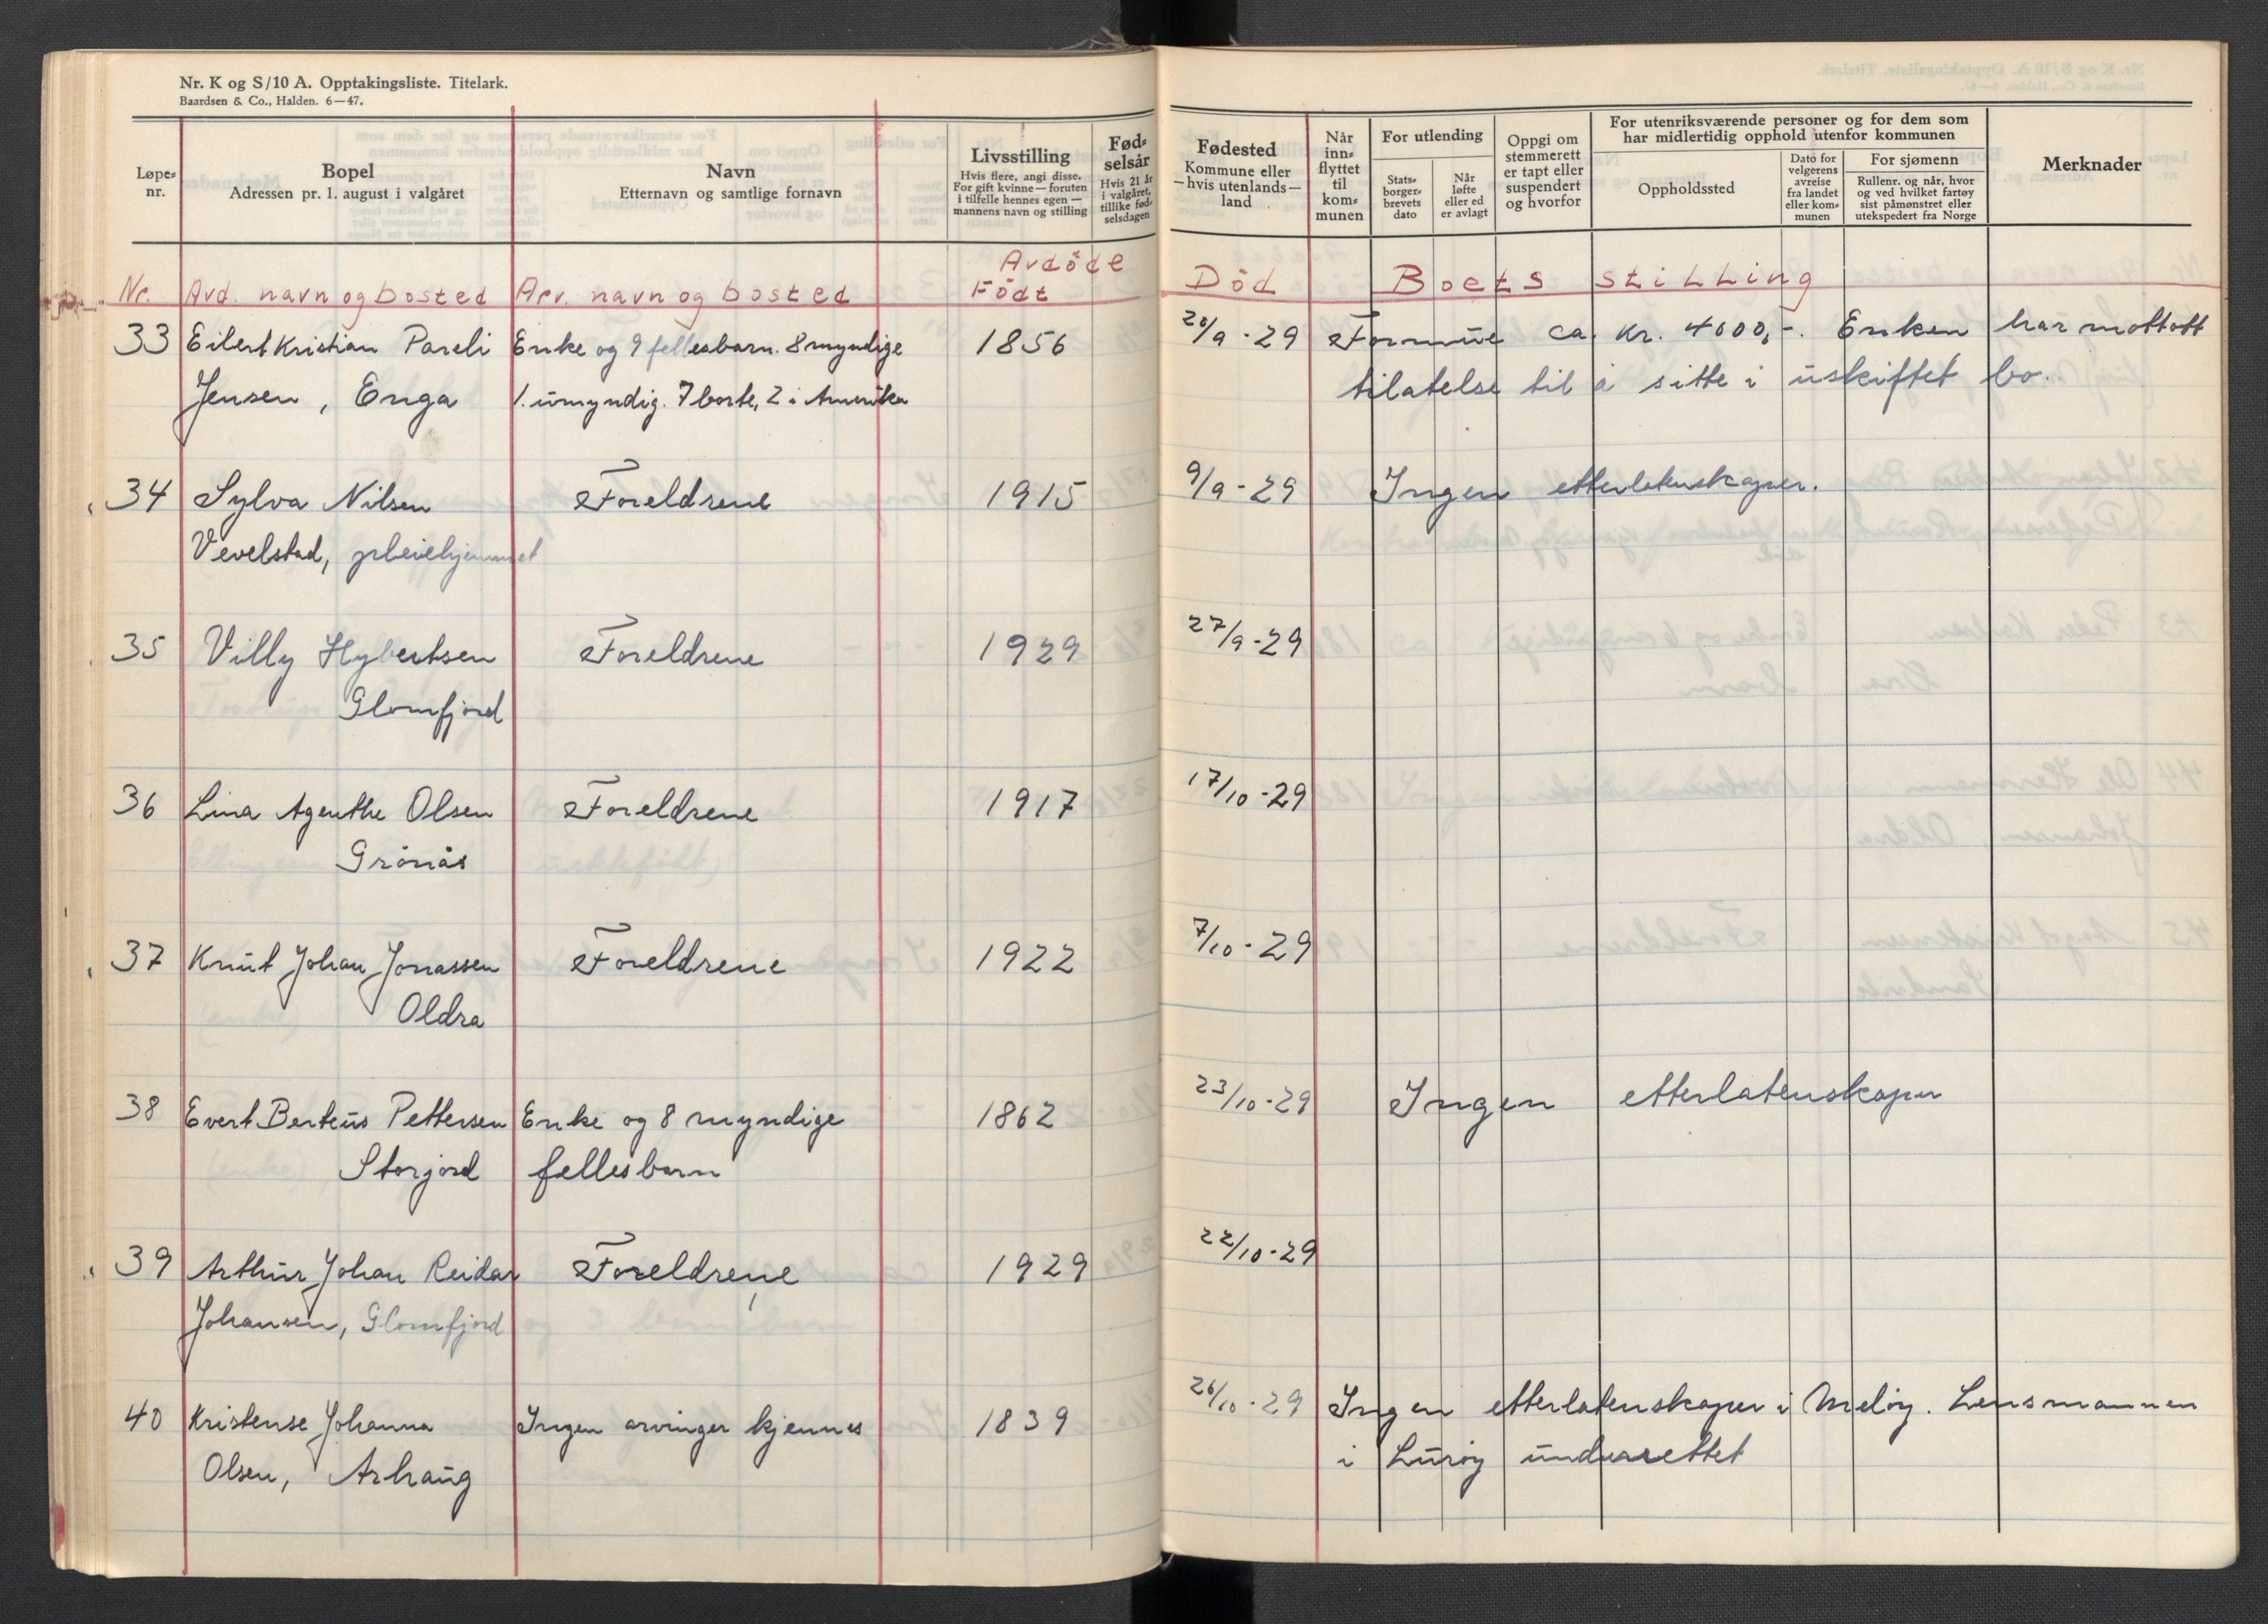 Nr. K og S/10 A. Opptakingsliste. Titelark.
Baardsen & Co., Halden. 6—47.
Løpe-
nr.
Bopel
Adressen pr. 1. august i valgåret
Navn
Etternavn og samtlige fornavn
Livsstilling
Hvis flere, angi disse.
For gift kvinne — foruten
i tilfelle hennes egen —
mannens navn og stilling
Fød-
selsår
Hvis 21 år
i valgåret,
tillike fød-
selsdagen
Fødested
Kommune eller
— hvis utenlands —
land
Når
inn-
flyttet
til
kom-
munen
For utlending
Stats-
borger-
brevets
dato
Når
løfte
eller ed
er avlagt
Oppgi om
stemmerett
er tapt eller
suspendert
og hvorfor
For utenriksværende personer og for dem som
har midlertidig opphold utenfor kommunen
Oppholdssted
Dato for
velgerens
avreise
fra landet
eller kom-
munen
For sjømenn
Rullenr. og når, hvor
og ved hvilket fartøy
sist påmønstret eller
utekspedert fra Norge
Merknader
Avdöde
Nr. Avd. navn og bosted Arv. navn og bosted Födt Död Boets stilling
33 Eilert Kristian Pareli Enke og 9 fellesbarn. 8 myndige 1856 20/9-29 Formue ca. kr. 4000,-. Enken har mottatt
Jensen, Enga 1. umyndig. 7 borte, 2 i Amerika tilatelse til å sitte i uskiftet bo.
34 Sylva Nilsen Foreldrene 1915 9/9-29 Ingen etterlatenskaper.
Vevelstad, pleiehjemmet
35 Villy Hybertsen Foreldrene 1929 27/9-29
Glomfjord
36 Lina Agenthe Olsen Foreldrene 1917 17/10-29
Grönås
37 Knut Johan Jonassen Foreldrene 1922 7/10-29
Oldra
38 Evert Berteus Pettersen Enke og 8 myndige 1862 23/10-29 Ingen etterlatenskaper
Storjord fellesbarn
39 Arthur Johan Reidar Foreldrene 1929 22/10-29
Johansen, Glomfjord
40 Kristense Johanna Ingen arvinger kjennes 1839 26/10-29 Ingen etterlatenskaper i Melöy. Lensmannen
Olsen, Arhaug i Luröy underrettet